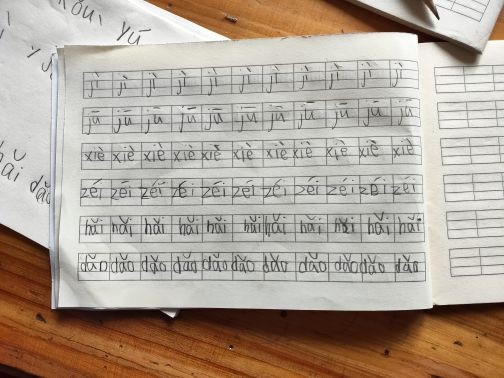 jì jì jì jì jì jì jì jì jì jì jì
jū jū jū jū jū jū jū jū jū jū jū
xiè xiè xiè xiè xiè xiè xiè xiè xiè xiè xiè
zéi zéi zéi zéi zéi zéi zéi zéi zéi zéi zéi
hǎi hǎi hǎi hǎi hǎi hǎi hǎi hǎi hǎi hǎi hǎi
dǎo dǎo dǎo dǎo dǎo dǎo dǎo dǎo dǎo dǎo dǎo